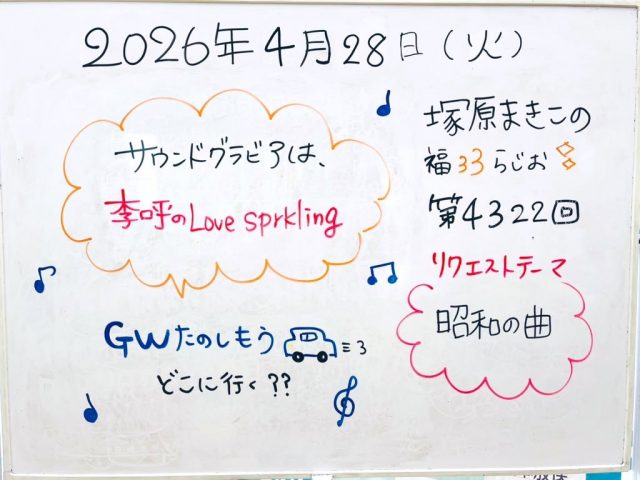 2026年4月28日(火)
サウンドグラビアは、
李呼のLove sprkling
塚原まきこの
福33らじお
第4322回
リクエストテーマ
昭和の曲
GWたのしもう
どこに行く??